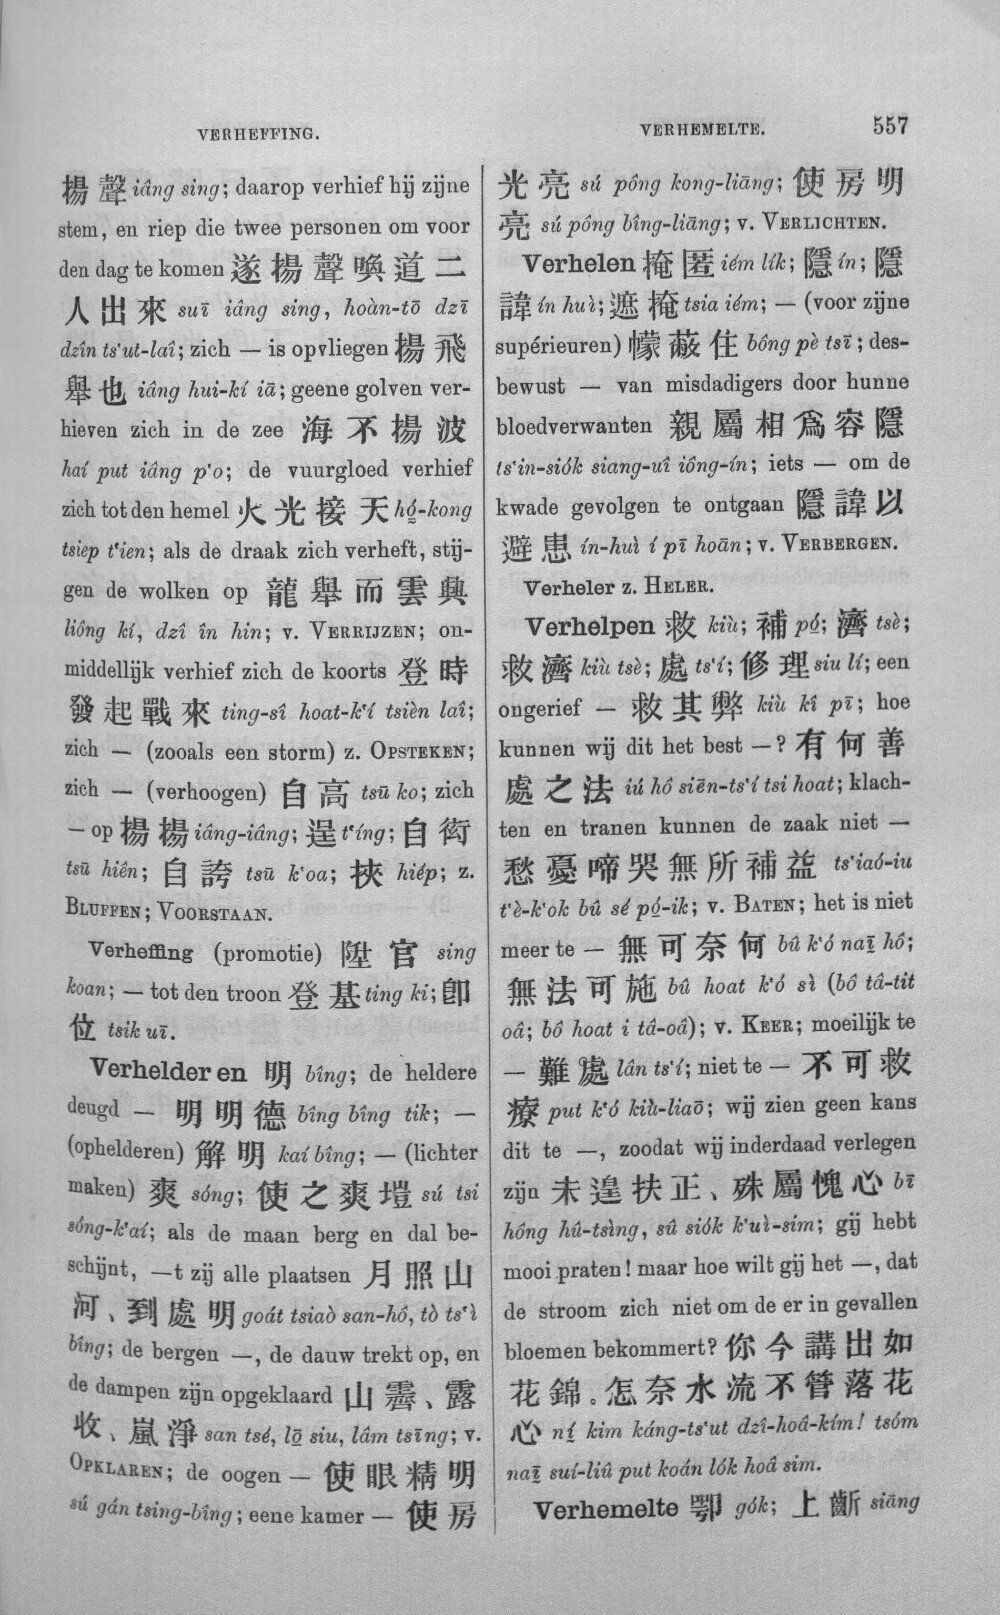 VERHEFFING.
VERHEMELTE.
557
揚聲 iâng sing; daarop verhief hij zijne
stem, en riep die twee personen om voor
den dag te komen 遂揚聲喚道二
人出來 suī iâng sing, hoàn-tō dzī
dzîn ts‘ut-laî; zich — is opvliegen 楊飛
舉也 iâng hui-kí iā; geene golven ver-
hieven zich in de zee 海不揚波
haí put iâng p‘o; de vuurgloed verhief
zich tot den hemel 火光接天 hó̤-kong
tsiep t‘ien; als de draak zich verheft, stij-
gen de wolken op 龍舉而雲興
liông kí, dzî în hin; v. VERRIJZEN; on-
middellijk verhief zich de koorts 登時
發起戰來 ting-sî hoat-k‘í tsièn laî;
zich — (zooals een storm) z. OPSTEKEN;
zich — (verhoogen) 自高 tsū ko; zich
— op 揚揚 iâng-iâng; 逞 t‘íng; 自衒
tsū hiên; 自誇 tsū k‘oa; 挾 hiép; z.
BLUFFEN; VOORSTAAN.
Verheffing (promotie) 陞官 sing
koan; — tot den troon 登基 ting ki; 卽
位 tsik uī.
Verhelderen 明 bîng; de heldere
deugd — 明明德 bîng bîng tik; —
(ophelderen) 解明 kaí bîng; — (lichter
maken) 爽 sóng; 使之爽塏 sú tsi
sóng-k‘aí; als de maan berg en dal be-
schijnt, —t zij alle plaatsen 月照山
河、到處明 goát tsiaò san-hô, tò ts‘ì
bîng; de bergen —, de dauw trekt op, en
de dampen zijn opgeklaard 山霽、露
收、嵐淨 san tsé, lō̤ siu, lâm tsīng; v.
OPKLAREN; de oogen — 使眼精明
sú gán tsing-bîng; eene kamer — 使房
光亮 sú pông kong-liāng; 使房明
亮 sú pông bîng-liāng; v. VERLICHTEN.
Verhelen 掩匿 iém lík; 隱 ín; 隱
諱 ín huì; 遮掩 tsia iém; — (voor zijne
supérieuren) 幪蔽住 bông pè tsī; des-
bewust — van misdadigers door hunne
bloedverwanten 親屬相爲容隱
ts‘in-siók siang-uî iông-ín; iets — om de
kwade gevolgen te ontgaan 隱諱以
避患 ín-huì í pī hoān; v. VERBERGEN.
Verheler z. HELER.
Verhelpen 救 kiù; 補 pó̤; 濟 tsè;
救濟 kiù tsè; 處 ts‘í; 修理 siu lí; een
ongerief — 救其弊 kiù kî pī; hoe
kunnen wij dit het best —? 有何善
處之法 iú hô siēn-ts‘í tsi hoat; klach-
ten en tranen kunnen de zaak niet —
愁憂啼哭無所補益 ts‘iaó-iu
t‘è-k‘ok bû sé pó̤-ik; v. BATEN; het is niet
meer te — 無可奈何 bû k‘ó naī̤ hô;
無法可施 bû hoat k‘ó sì (bô tâ-tit
oâ; bô hoat i tâ-oâ); v. KEER; moeilijk te
— 難處 lân ts‘í; niet te — 不可救
療 put k‘ó kiù-liaō; wij zien geen kans
dit te —, zoodat wij inderdaad verlegen
zijn 未遑扶正、殊屬愧心 bī
hông hû-tsìng, sû siók k‘uì-sim; gij hebt
mooi praten! maar hoe wilt gij het —, dat
de stroom zich niet om de er in gevallen
bloemen bekommert? 你今講出如
花錦。怎奈水流不管落花
心 ní̤ kim káng-ts‘ut dzî-hoâ-kím! tsóm
naī̤ suí-liû put koán lók hoâ sim.
Verhemelte 㖾 gók; 上齗 siāng